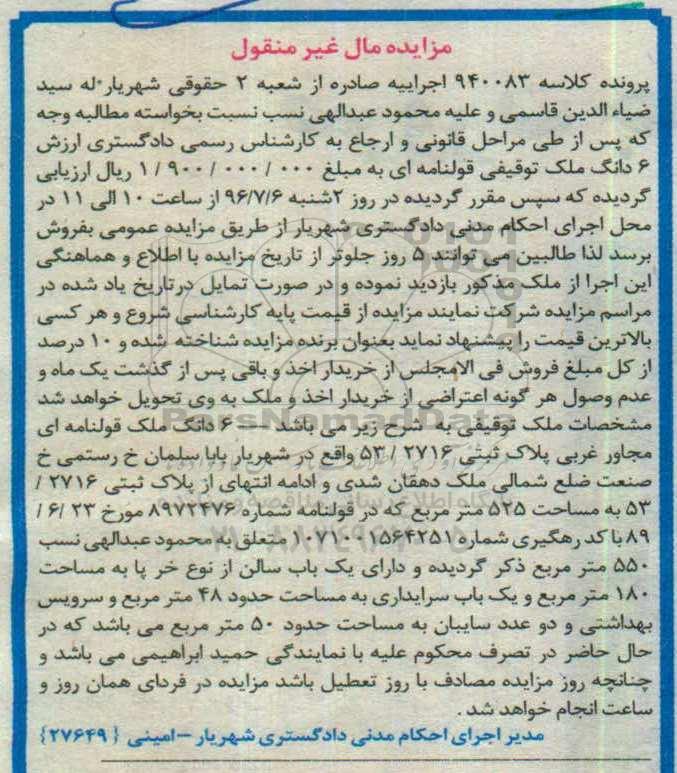 مزایده مال غیر منقول
پرونده کلاسه ۹۴۰۰۸۳ اجراییه صادره از شعبه ۲ حقوقی شهریار له سید
ضیاء الدین قاسمی و علیه محمود عبدالهی نسب نسبت بخواسته مطالبه وجه
که پس از طی مراحل قانونی و ارجاع به کارشناس رسمی دادگستری ارزش
۶ دانگ ملک توقیفی قولنامه ای به مبلغ ۰۰۰ / ۰۰۰ / ۹۰۰ / ۱ ریال ارزیابی
گردیده که سپس مقرر گردیده در روز ۲شنبه ۹۶/۷/۶ از ساعت ۱۰ الی ۱۱ در
محل اجرای احکام مدنی دادگستری شهریار از طریق مزایده عمومی بفروش
برسد لذا طالبین می توانند ۵ روز جلوتر از تاریخ مزایده با اطلاع و هماهنگی
این اجرا از ملک مذکور بازدید نموده و در صورت تمایل درتاریخ یاد شده در
مراسم مزایده شرکت نمایند مزایده از قیمت پایه کارشناسی شروع و هر کسی
بالاترین قیمت را پیشنهاد نماید بعنوان برنده مزایده شناخته شده و ۱۰ درصد
از کل مبلغ فروش فی الامجلس از خریدار اخذ و باقی پس از گذشت یک ماه و
عدم وصول هر گونه اعتراضی از خریدار اخذ و ملک به وی تحویل خواهد شد
مشخصات ملک توقیفی به شرح زیر می باشد — ۶ دانگ ملک قولنامه ای
مجاور غربی پلاک ثبتی ۲۷۱۶ / ۵۳ واقع در شهریار بابا سلمان خ رستمی خ
صنعت ضلع شمالی ملک دهقان شدی و ادامه انتهای از پلاک ثبتی ۲۷۱۶ /
۵۳ به مساحت ۵۲۵ متر مربع که در قولنامه شماره ۸۹۷۲۴۷۶ مورخ ۲۳ /۶ /
۸۹ با کد رهگیری شماره ۱۰۷۱۰۰۱۵۶۴۲۵۱ متعلق به محمود عبدالهی نسب
۵۵۰ متر مربع ذکر گردیده و دارای یک باب سالن از نوع خر پا به مساحت
۱۸۰ متر مربع و یک باب سرایداری به مساحت حدود ۴۸ متر مربع و سرویس
بهداشتی و دو عدد سایبان به مساحت حدود ۵۰ متر مربع می باشد که در
حال حاضر در تصرف محکوم علیه با نمایندگی حمید ابراهیمی می باشد و
چنانچه روز مزایده مصادف با روز تعطیل باشد مزایده در فردای همان روز و
ساعت انجام خواهد شد .
مدیر اجرای احکام مدنی دادگستری شهریار – امینی { ۲۷۶۴۹}
ParsNamadData